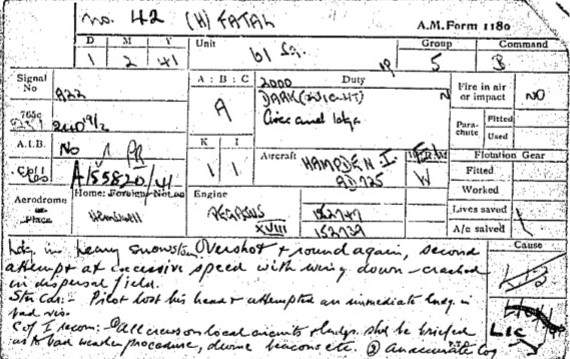 no. 42 (H) FATAL A.M. Form 1180
D M Y Unit Group Command
1 2 41 61 Sq. 5 B
Signal No A22 A : B : C 2000 Duty Fire in air or impact NO
A DARK (NIGHT) N
765c 240 19/2 Circs and ldgs Para-chute Fitted
Used
A.I.B. No K I Aircraft HAMPDEN I Flotation Gear
A/55820/41 1 1 AD725 W Fitted
Worked
Aerodrome Place Home: Foreign: Not on Engine Lives saved
Hemswell PEGASUS 152747 A/c salved
XVIII 152739
Ldg. in heavy snowstorm Overshot + round again, second Cause
attempt at excessive speed with wing down - crashed
in dispersal field.
Stn Cdr:- Pilot lost his head & attempted an immediate ldg. in
bad vis.
C of I recom:- All crews on local circuits & ldgs. shd be briefed
as to bad weather procedure, divine beacons etc. ② An accurate log